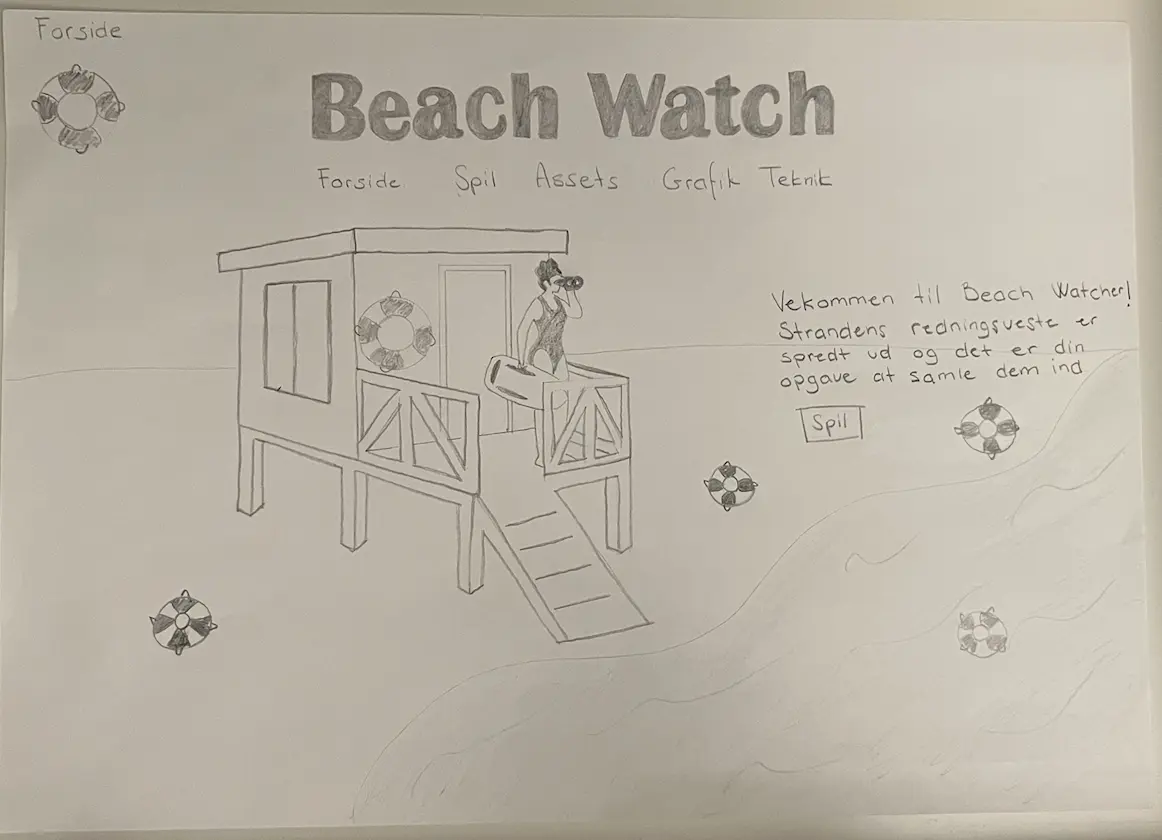 Forside
Beach Watch
Forside Spil Assets Grafik Teknik
Vekommen til Beach Watcher!
Strandens redningsveste er
spredt ud og det er din
opgave at samle dem ind
Spil